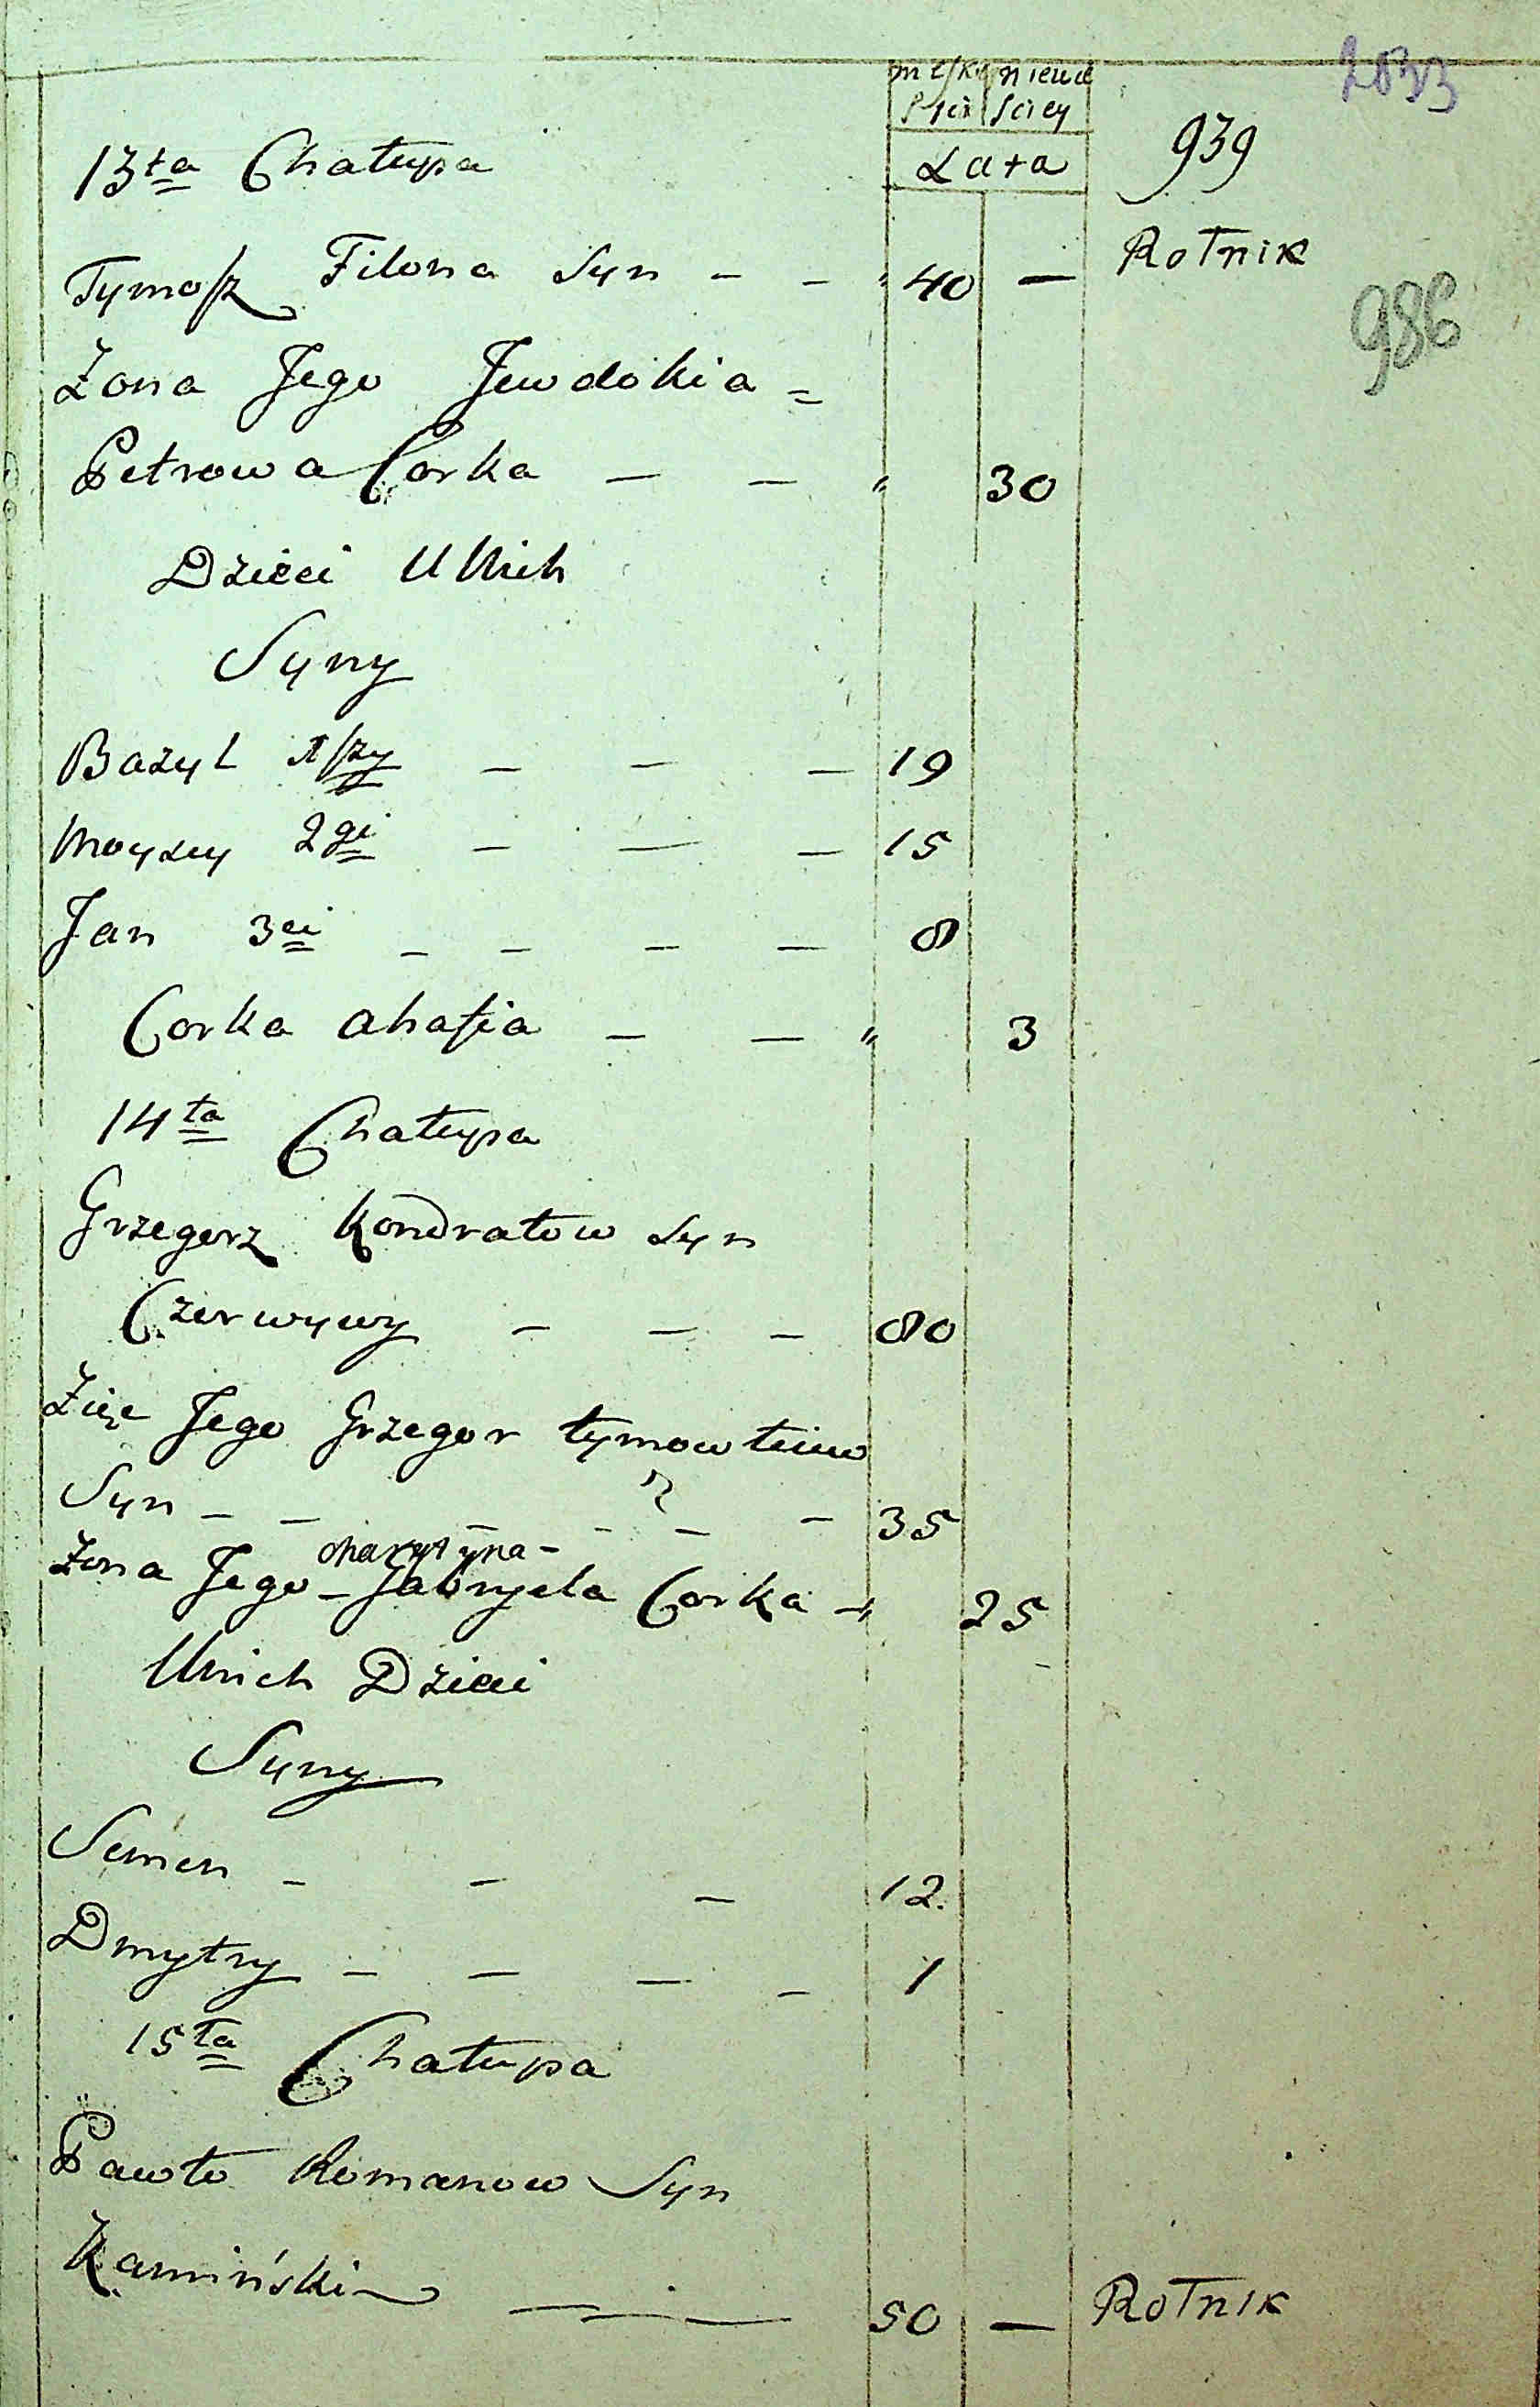 męską niewie
Płcia Sciey
2833
Lata
939
13ta Chałupa
Tymosz Filona Syn - - 40 — Rolnik
986
Zona Jego Jewdokia =
Petrowa Corka — — " 30
Dzieci U Nich
Syny
Bazyl 1szy — — — 19
Moyzey 2gi — — — 15
Jan 3ci — — — — 8
Corka ahafia — — " 3
14ta Chałupa
Grzegorz Kondratow Syn
Czerwywy — — — 80
Zięc Jego Grzegor tymow
Syn — — — — — — 35
charytyna -
Zona Jego - Gabryela Corka — " 25
U nich Dzieci
Syny
Semen — — — 12.
Dmytry — — — — 1
15ta Chałupa
Pawło Romanow Syn
Kamiński — — — 50 — Rolnik